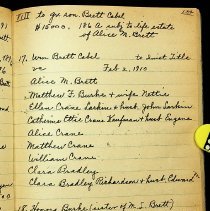 to grson. Brett Cabel
$15000. 186 A. subj. to life estate
of Alice M. Brett
17. Wm Brett Cabel to Inact Title
vs Feb 2, 1910
Alice M. Brett
Matthew F. Burks & wife Nettie
Ellen Crane Larkin & husb. John Larkin
Catherine Ettie Crane Kaufman & husb Eugene
Alice Crane
Matthew Crane
William Crane
Clara Bradley
Clara Bradley Richardson & husb. Edward
18. Honora Burke (sister of M. S. Brett)